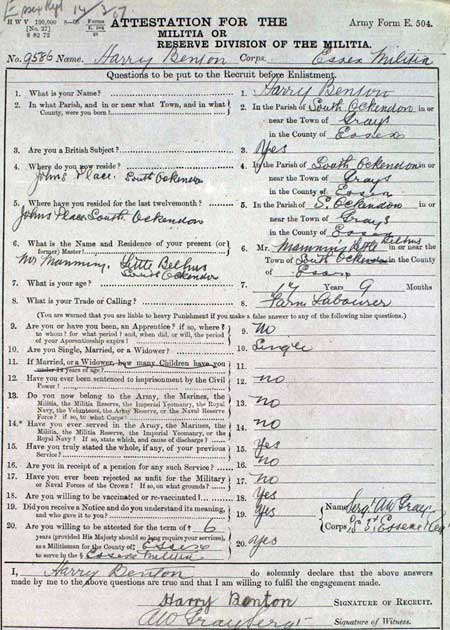 Essex Regt 14/2/07
H W V 190,000 8—05 Forms
[No. 27] E 504
8 82 72 2
ATTESTATION FOR THE
MILITIA OR
RESERVE DIVISION OF THE MILITIA.
Army Form E. 504.
No. 9586 Name. Harry Benton Corps. Essex Militia
Questions to be put to the Recruit before Enlistment.
1. What is your Name?
1. Harry Benton
2. In what Parish, and in or near what Town, and in what County, were you born?
2. In the Parish of South Ockendon in or
near the Town of Grays
in the County of Essex
3. Are you a British Subject?
3. Yes
4. Where do you now reside?
Johns Place. South Ockendon
4. In the Parish of South Ockendon or
near the Town of Grays
in the County of Essex
5. Where have you resided for the last twelvemonth?
Johns Place South Ockendon
5. In the Parish of S. Ockendon
near the Town of Grays
in the County of Essex
6. What is the Name and Residence of your present (or former) Master?
Mr Manning, Little Belhus
South Ockendon
6. Mr. Manning Little Belhus in or near the
Town of South Ockendon in the County
of Essex
7. What is your age?
7. 17 Years 9 Months
8. What is your Trade or Calling?
8. Farm Labourer
(You are warned that you are liable to heavy Punishment if you make a false answer to any of the following nine questions.)
9. Are you or have you been, an Apprentice? if so, where?
to whom? for what period? and, when did, or will, the period
of your Apprenticeship expire?
9. No
10. Are you Single, Married, or a Widower?
10. Single
11. If Married, or a Widower, how many Children have you
under 14 years of age?
11.
12. Have you ever been sentenced to imprisonment by the Civil
Power?
12. no
13. Do you now belong to the Army, the Marines, the
Militia, the Militia Reserve, the Imperial Yeomanry, the Royal
Navy, the Volunteers, the Army Reserve, or the Naval Reserve
Force? if so, to what Corps?
13. no
14.* Have you ever served in the Army, the Marines, the
Militia, the Militia Reserve, the Imperial Yeomanry, or the
Royal Navy? If so, state which, and cause of discharge?
14. no
15. Have you truly stated the whole, if any, of your previous
Service?
15. Yes
16. Are you in receipt of a pension for any such Service?
16. no
17. Have you ever been rejected as unfit for the Military
or Naval Forces of the Crown? If so, on what grounds?
17. no
18. Are you willing to be vaccinated or re-vaccinated?
18. Yes
19. Did you receive a Notice and do you understand its meaning,
and who gave it to you?
19. Yes
Name Sergt AW Gray
Corps
20. Are you willing to be attested for the term of † 6
years (provided His Majesty should so long require your services),
as a Militiaman for the County of Essex
to serve in the § Essex Militia
20. Yes
I, Harry Benton do solemnly declare that the above answers
made by me to the above questions are true and that I am willing to fulfil the engagement made.
Harry Benton SIGNATURE OF RECRUIT.
AW Gray Sergt Signature of Witness.